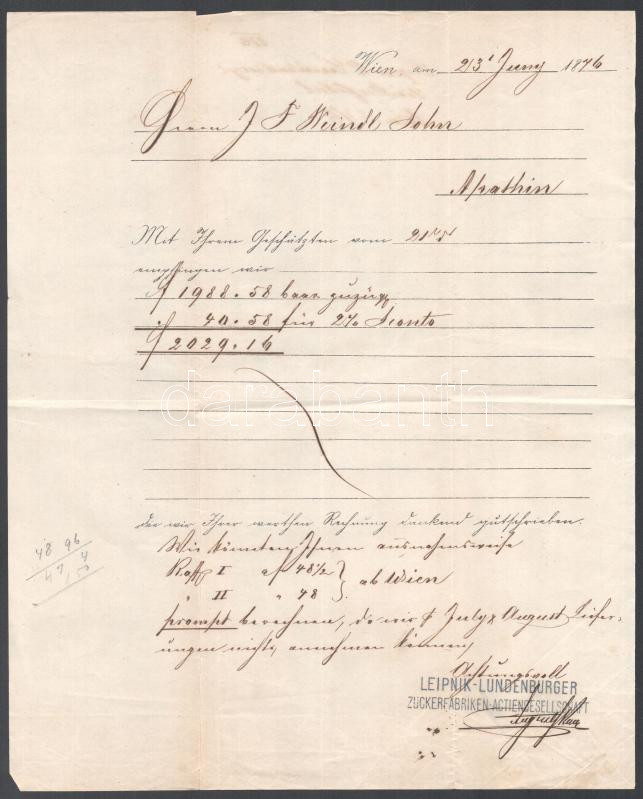 Wien am 23t Juny 1876
Herrn J F Weindl Sohn
Apathin
Mit Ihrem Geschätzten vom 21
empfingen wir
f 1988.58 baar
f 40.58 für 2% Sconto
f 2029.16
darabanth
die wir Ihrer werthen Rechnung dankend gutschrieben.
Wir könnten Ihnen ausnahmsweise
Raff I a f 48½
" II " 48 } ab Wien
prompt berechnen, da wir p July & August Liefer-
ungen nichts annehmen können,
Achtungsvoll
LEIPNIK-LUNDENBURGER
ZUCKERFABRIKEN-ACTIENGESELLSCHAFT
48 96